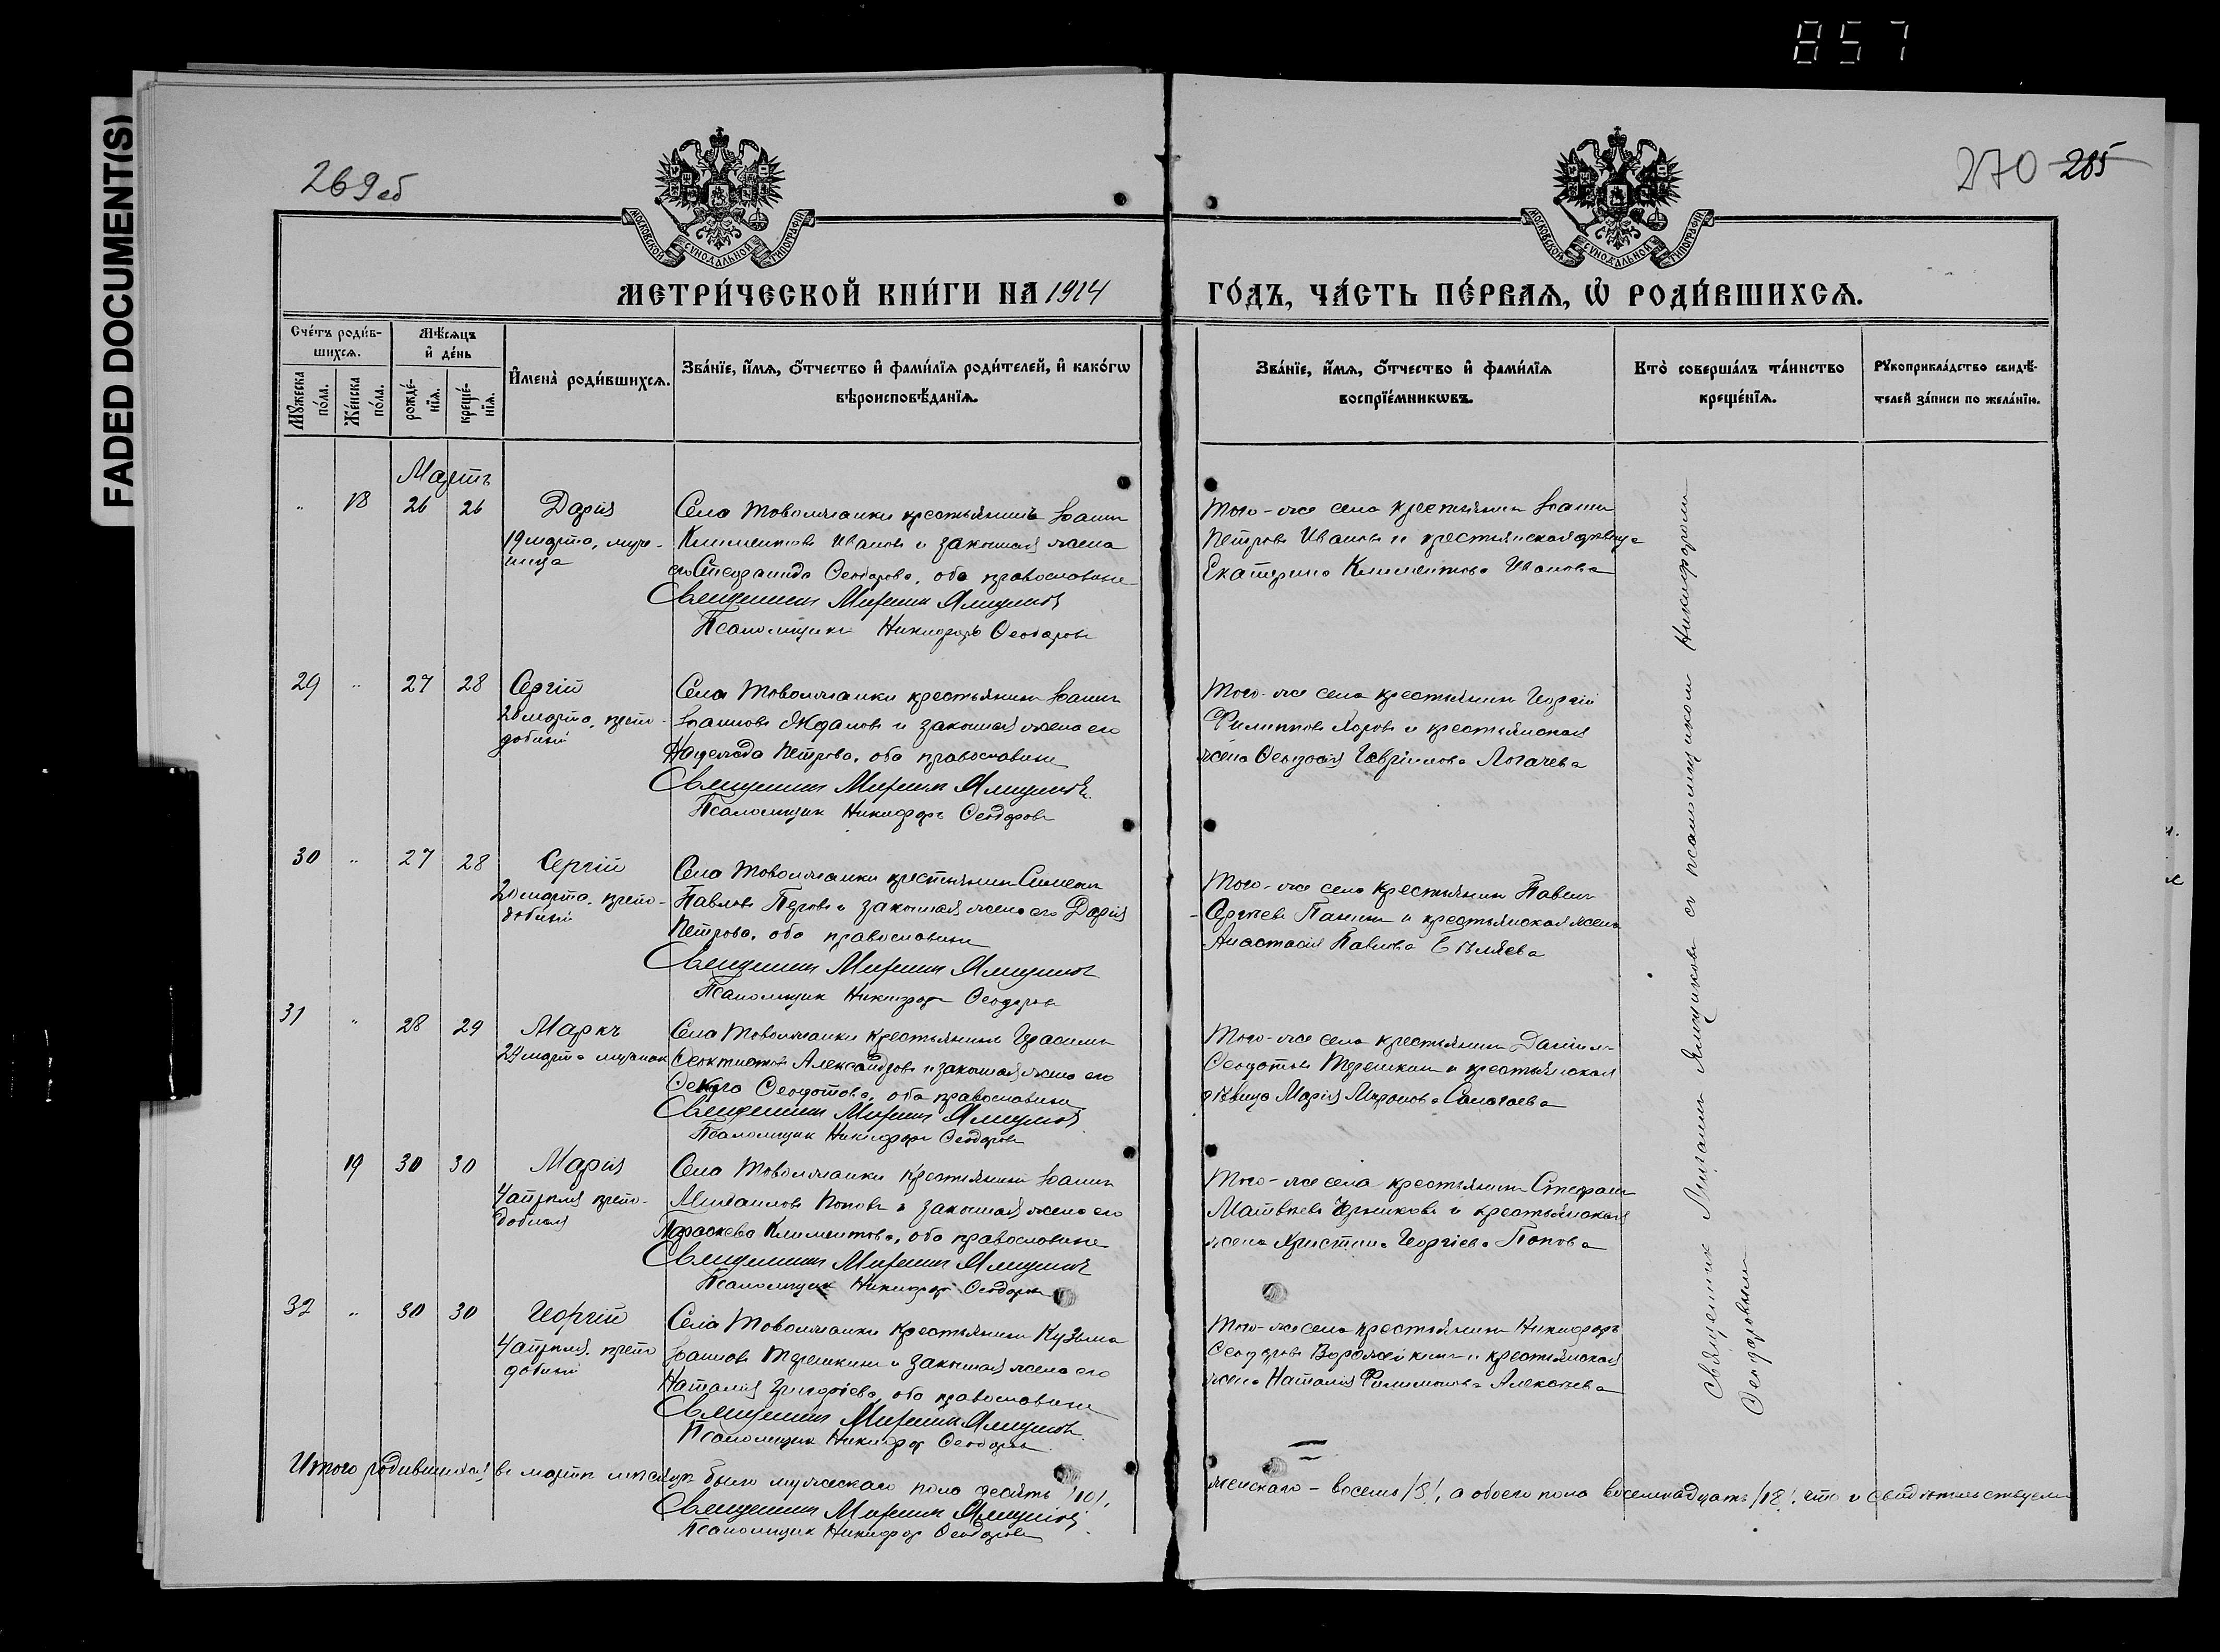 857
FADED DOCUMENT(S)
269 об
270 285
МОСКОВСКОЙ СѴНОДАЛЬНОЙ ТИПОГРАФІИ
МОСКОВСКОЙ СѴНОДАЛЬНОЙ ТИПОГРАФІИ
МЕТРИ́ЧЕСКОЙ КНИ́ГИ НА 1914
ГО́ДЪ, ЧА́СТЬ ПЕ́РВАѦ, Ѽ РОДИ́ВШИХСѦ.
Сче́тъ роди́в-
шихсѧ.
Мꙋ́жеска
по́ла.
Же́нска
по́ла.
Мѣ́сѧцъ
и҆ де́нь
рожде́-
нїѧ.
креще́-
нїѧ.
И҆мена̀ роди́вшихсѧ.
Зва́нїе, и҆́мѧ, ѻ҆́тчество и҆ фами́лїѧ роди́телей, и҆ како́гѡ
вѣроисповѣ́данїѧ.
Зва́нїе, и҆́мѧ, ѻ҆́тчество и҆ фами́лїѧ
воспрїе́мникѡвъ.
Кто̀ соверша́лъ та́инство
креще́нїѧ.
Рꙋкоприкла́дство свидѣ́-
телей за́писи по жела́нїю.
Мартъ
" 18 26 26 Дарія
19 марта, муче-
ница
Села Товолжанки крестьянинъ Іоаннъ
Климентовъ Ивановъ и законная жена
его Стефанида Ѳеодорова, оба православные
Священникъ Михаилъ Ямщиковъ
Псаломщикъ Никифоръ Ѳеодоровъ
Того-же села крестьянинъ Іоаннъ
Петровъ Ивановъ и крестьянская дѣвица
Екатерина Климентова Иванова
29 " 27 28 Сергій
20 марта, препо-
добный
Села Товолжанки крестьянинъ Іоаннъ
Іоанновъ Ждановъ и законная жена его
Надежда Петрова, оба православные
Священникъ Михаилъ Ямщиковъ
Псаломщикъ Никифоръ Ѳеодоровъ
Того-же села крестьянинъ Георгій
Филипповъ и крестьянская
жена Ѳеодосія Гавріилова Логачева
30 " 27 28 Сергій
20 марта, препо-
добный
Села Товолжанки крестьянинъ Симеонъ
Павловъ и законная жена его Дарія
Петрова, оба православные
Священникъ Михаилъ Ямщиковъ
Псаломщикъ Никифоръ Ѳеодоровъ
Того-же села крестьянинъ Павелъ
Сергѣевъ Панинъ и крестьянская жена
Анастасія Павлова Бѣляева
31 " 28 29 Маркъ
29 марта мученик
Села Товолжанки крестьянинъ Герасимъ
Ѳеоктистовъ Александровъ и законная жена его
Ѳекла Ѳеодотова, оба православные
Священникъ Михаилъ Ямщиковъ
Псаломщикъ Никифоръ Ѳеодоровъ
Того-же села крестьянинъ Даніилъ
Ѳеодотовъ Терешкинъ и крестьянская
дѣвица Марія Миронова
19 30 30 Марія
4 апрѣля препо-
добная
Села Товолжанки крестьянинъ Іоаннъ
Михаиловъ Поповъ и законная жена его
Параскева Климентова, оба православные
Священникъ Михаилъ Ямщиковъ
Псаломщикъ Никифоръ Ѳеодоровъ
Того-же села крестьянинъ Стефанъ
Матвѣевъ и крестьянская
жена Христина Георгіева Попова
32 " 30 30 Георгій
4 апрѣля, препо
добный
Села Товолжанки крестьянинъ Кузьма
Іоанновъ Терешкинъ и законная жена его
Наталія, оба православные
Священникъ Михаилъ Ямщиковъ
Псаломщикъ Никифоръ Ѳеодоровъ
Того-же села крестьянинъ Никифоръ
Ѳеодоровъ и крестьянская
жена Наталія Филимонова
Священникъ Михаилъ Ямщиковъ съ псаломщикомъ Никифоромъ
Ѳеодоровымъ
Итого родившихся въ мартѣ мѣсяцѣ было мужескаго пола десять /10/,
женскаго - восемь /8/, а обоего пола восемнадцать /18/, что и свидѣтельствуемъ
Священникъ Михаилъ Ямщиковъ
Псаломщикъ Никифоръ Ѳеодоровъ